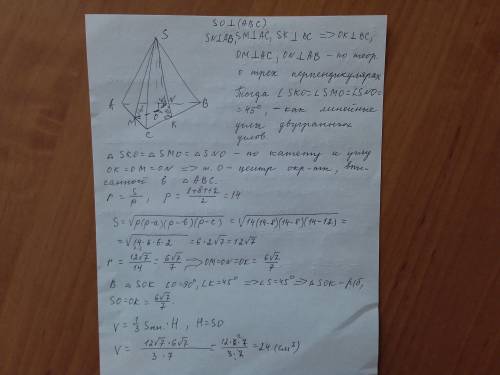 SO⊥(ABC)
SN⊥AB, SM⊥AC, SK⊥BC => OK⊥BC,
OM⊥AC, ON⊥AB - по теор.
о трех перпендикулярах
Тогда ∠SKO=∠SMO=∠SNO=
=45°, - как линейные
углы двугранных
углов.
S
A
M
O
N
B
K
C
△SKO=△SMO=△SNO - по катету и углу
OK=OM=ON => т. O - центр окр-ти, впи-
санной в △ABC.
r = S/p, p = (8+8+12)/2 = 14
S = √p(p-a)(p-b)(p-c) = √14(14-8)(14-8)(14-12) =
= √14·6·6·2 = 6·2√7 = 12√7
r = 12√7/14 = 6√7/7 => OM=ON=OK= 6√7/7
В △SOK ∠O=90°, ∠K=45° => ∠S=45° => △SOK - р/б,
SO=OK= 6√7/7
V = 1/3 Sосн·H, H=SO
V = 12√7·6√7/3·7 = 12·6·7/3·7 = 24 (см³)